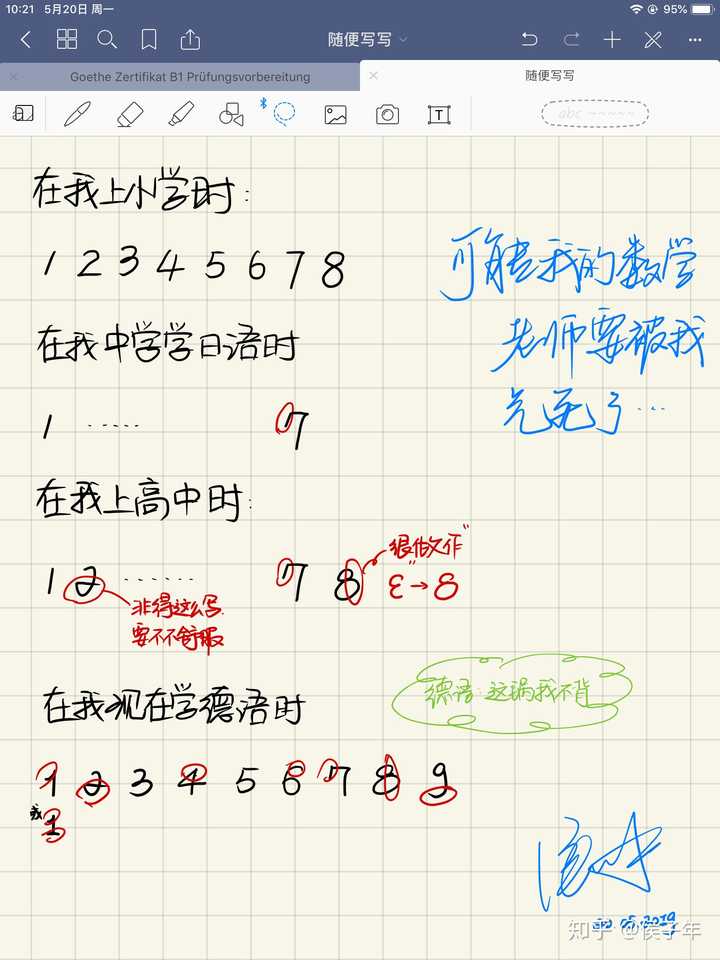 10:21 5月20日 周一
95%
随便写写
Goethe Zertifikat B1 Prüfungsvorbereitung
随便写写
abc
在我上小学时:
1 2 3 4 5 6 7 8
可能我的数学
老师要被我
气死了…
在我中学学日语时
1 ····· 7
在我上高中时:
1 2 ······ 7 8
很做作
"ε"→8
非得这么写
要不不舒服
在我现在学德语时
德语:这锅我不背
1 2 3 4 5 6 7 8 9
或
1
20.05.2019
知乎 @侯子年